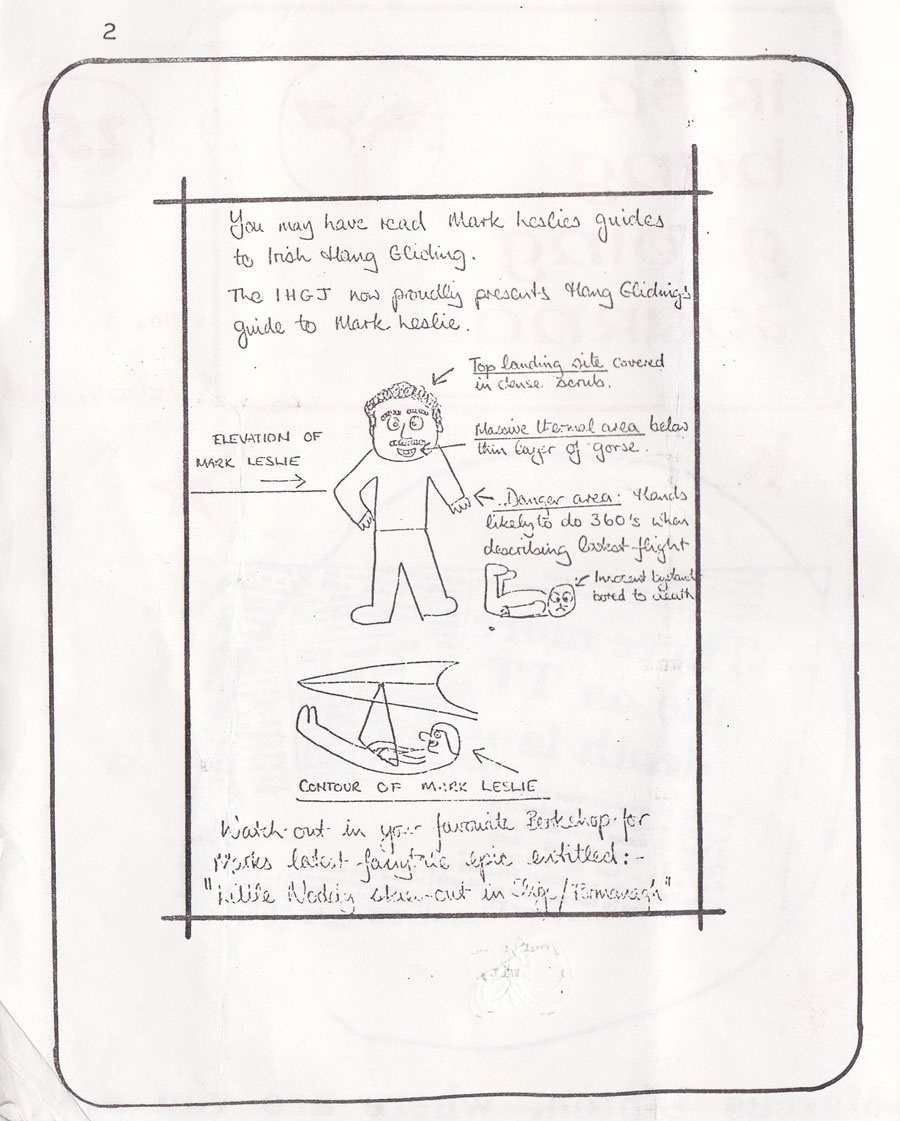 2
You may have read Mark Leslies guides
to Irish Hang Gliding.
The IHGJ now proudly presents Hang Gliding's
guide to Mark Leslie.
Top landing site covered
in dense scrub.
ELEVATION OF
MARK LESLIE
Massive thermal area below
thin layer of gorse.
Danger area: Hands
likely to do 360's when
describing latest flight
Innocent
bored to death
CONTOUR OF MARK LESLIE
Watch out in your favourite for
Marks latest epic entitled:-
"Little Noddy out in